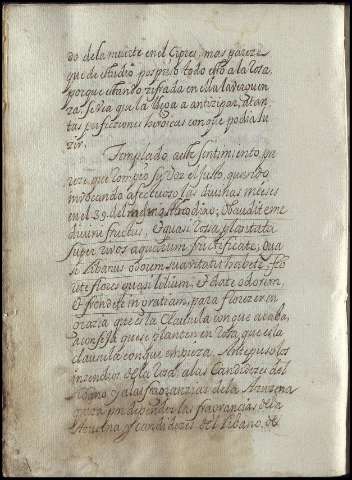 do de la muerte en el Cipres, mas pareze
que de estudio pospuso todo esto a la Rosa,
porque estando zifrada en ella la verguen
za. se via que la iva a antizipar, de tan
tas perfecciones heroicas con que podia lu
zir.
Templado, este sentimiento, pa
reze que rompio su voz el justo, quando
invocando afectuoso las divinas mieses
en el 39. del mismo libro dixo; Obaudite me
divini fructus, & quasi rosa plantata
super rivos aquarum fructificate; qua
si Libanus odorem suavitatis habete. flo
rete flores quasi lilium, & date odorem,
& frondete in gratiam, para florezer en
grazia que es la Clausula con que acaba,
aconseja que se planten en Rosa, que es la
clausula con que empieza. Antepuso los
incendios de la Rosa, a las Candidezes del
Libano, y a las fragranzias de la Azuzena
por depender las fragrancias de la
Azuzena, y candidezes del Libano, de